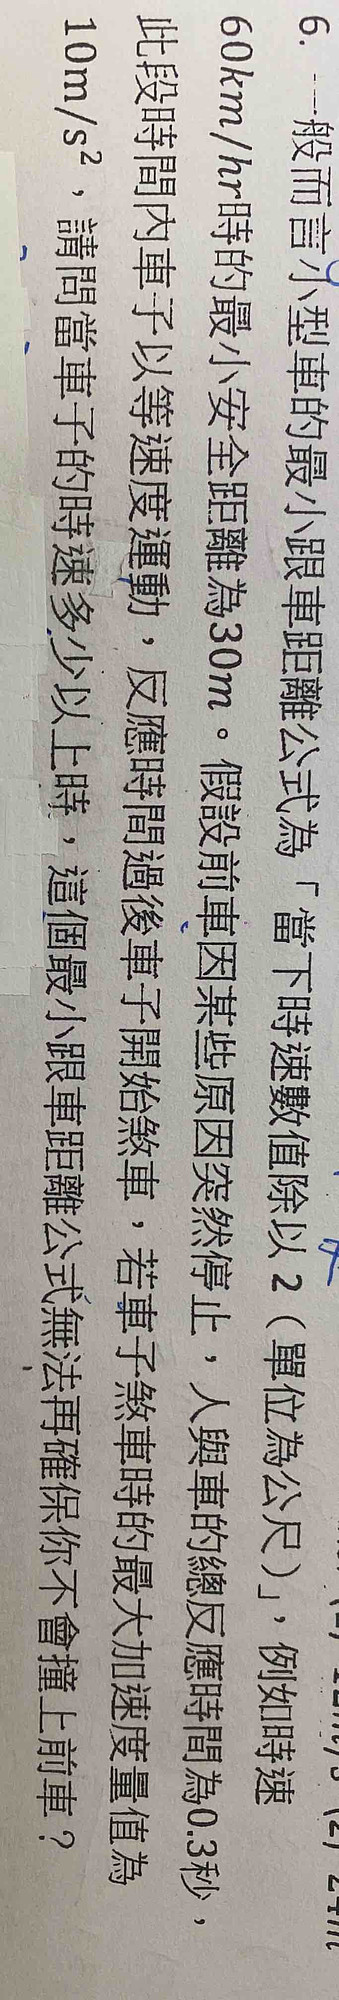 6. 一般而言小型車的最小跟車距離公式為「當下時速數值除以 2（單位為公尺）」，例如時速
60km/hr時的最小安全距離為30m。假設前車因某些原因突然停止，人與車的總反應時間為0.3秒，
此段時間內車子以等速度運動，反應時間過後車子開始煞車，若車子煞車時的最大加速度量值為
10m/s²，請問當車子的時速多少以上時，這個最小跟車距離公式無法再確保你不會撞上前車？